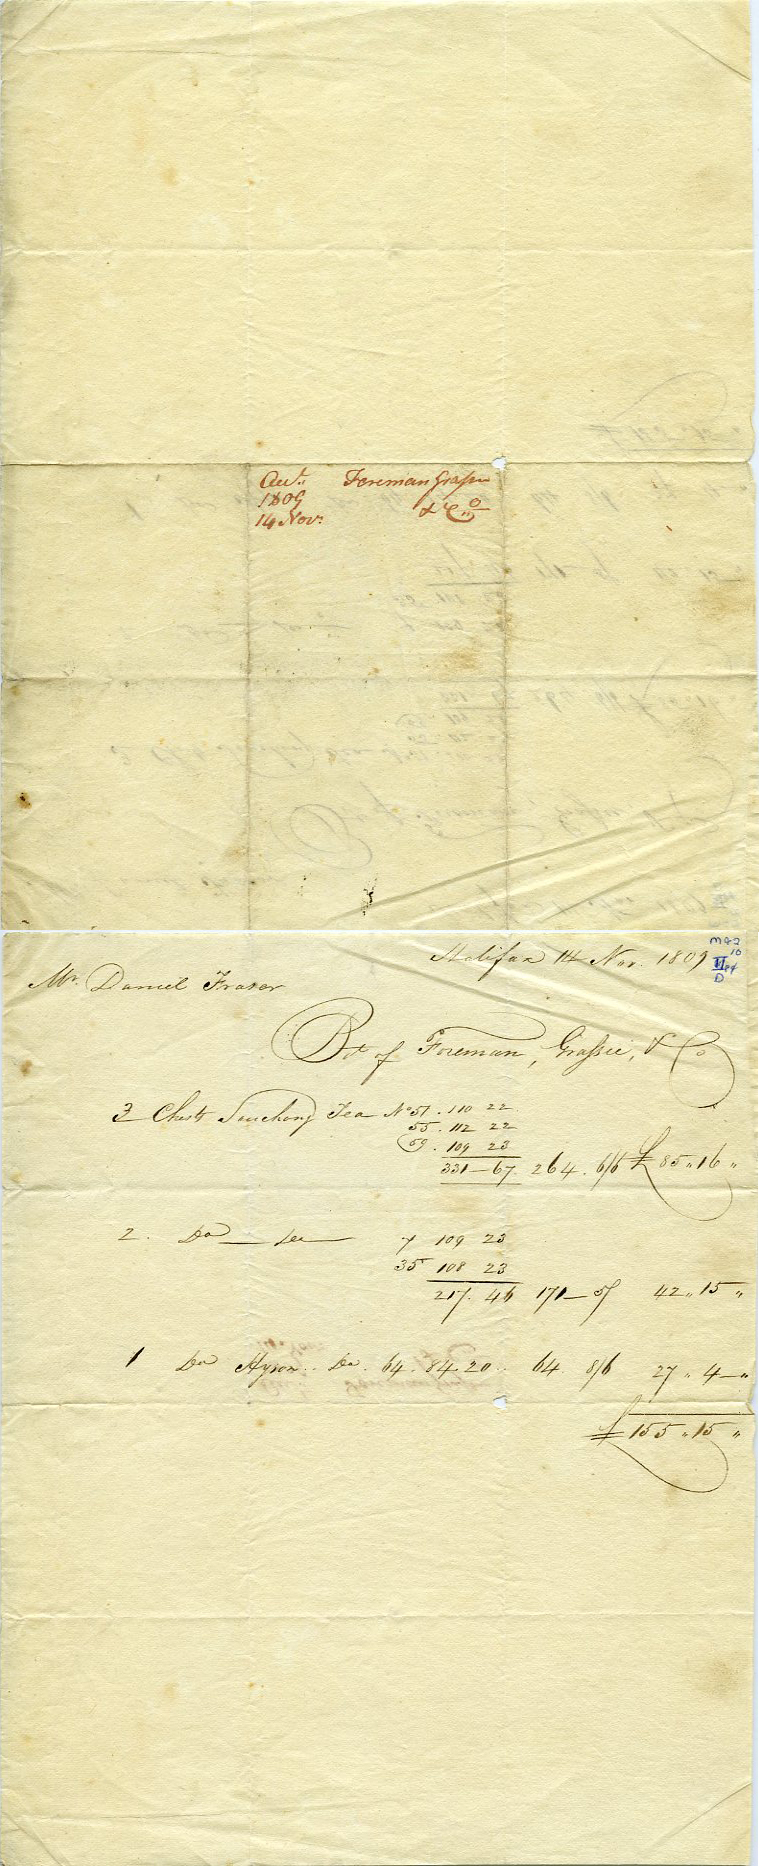 Acct.
Foreman Grassie
1809
& Co
14 Nov:
Halifax 14 Nov. 1809
MG2
10
84
D
Mr. Daniel Fraser
Bot of Foreman, Grassie, & Co
3 Chests Souchong Tea No 51. 110 22
55. 112 22
59. 109 23
331–67. 264. 6/6 £85„16„
2. Do — Tea — 7 109 23
35 108 23
217. 46 171– 5/ 42„15„
1 Do Hyson.. Do. 64. 84.20.. 64 8/6 27„4–„
£155„15„